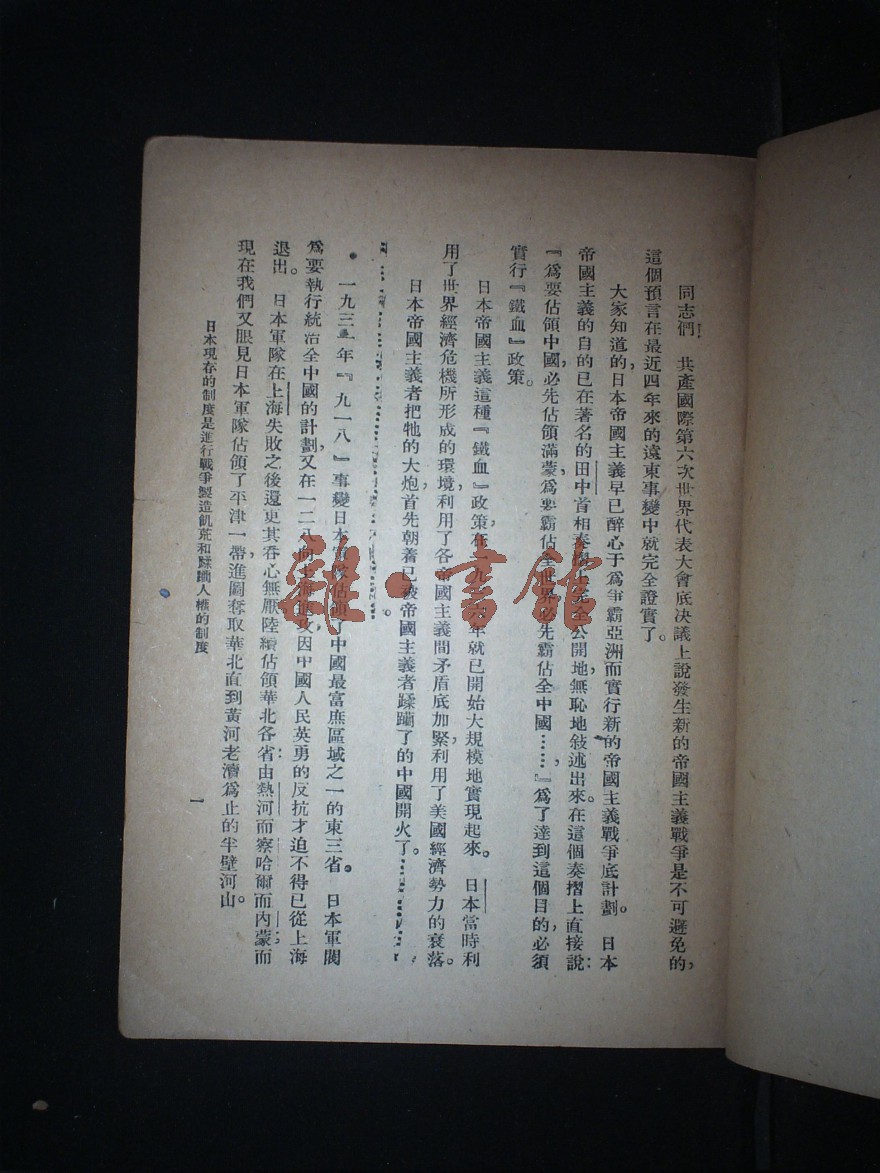 同志們　共產國際第六次世界代表大會底決議上說發生新的帝國主義戰爭是不可避免的，
這個預言在最近四年來的遠東事變中就完全證實了。
大家知道的，日本帝國主義早已醉心于爲爭霸亞洲而實行新的帝國主義戰爭底計劃。　日本
帝國主義的目的已在著名的田中首相奏摺上完全公開地，無恥地敍述出來。在這個奏摺上直接說：
『爲要佔領中國，必先佔領滿蒙，爲要霸佔全世界，必先霸佔全中國……，』爲了達到這個目的，必須
實行『鐵血』政策。
日本帝國主義這種『鐵血』政策，在一九三一年就已開始大規模地實現起來。　日本當時利
用了世界經濟危機所形成的環境，利用了各帝國主義間矛盾底加緊，利用了美國經濟勢力的衰落。
日本帝國主義者把牠的大炮首先朝着已被帝國主義者蹂躪了的中國開火了。……
……。
一九三一年『九一八』事變，日本軍隊佔領了中國最富庶區域之一的東三省。　日本軍閥
爲要執行統治全中國的計劃，又在一二八向上海進攻，因中國人民英勇的反抗，才迫不得已從上海
退出。　日本軍隊在上海失敗之後，還更其吞心無厭，陸續佔領華北各省，由熱河而察哈爾而內蒙；而
現在我們又眼見日本軍隊佔領了平津一帶，進圖奪取華北直到黃河老瀆爲止的半壁河山。
日本現存的制度是進行戰爭製造飢荒和蹂躪人權的制度
一
雜·書館